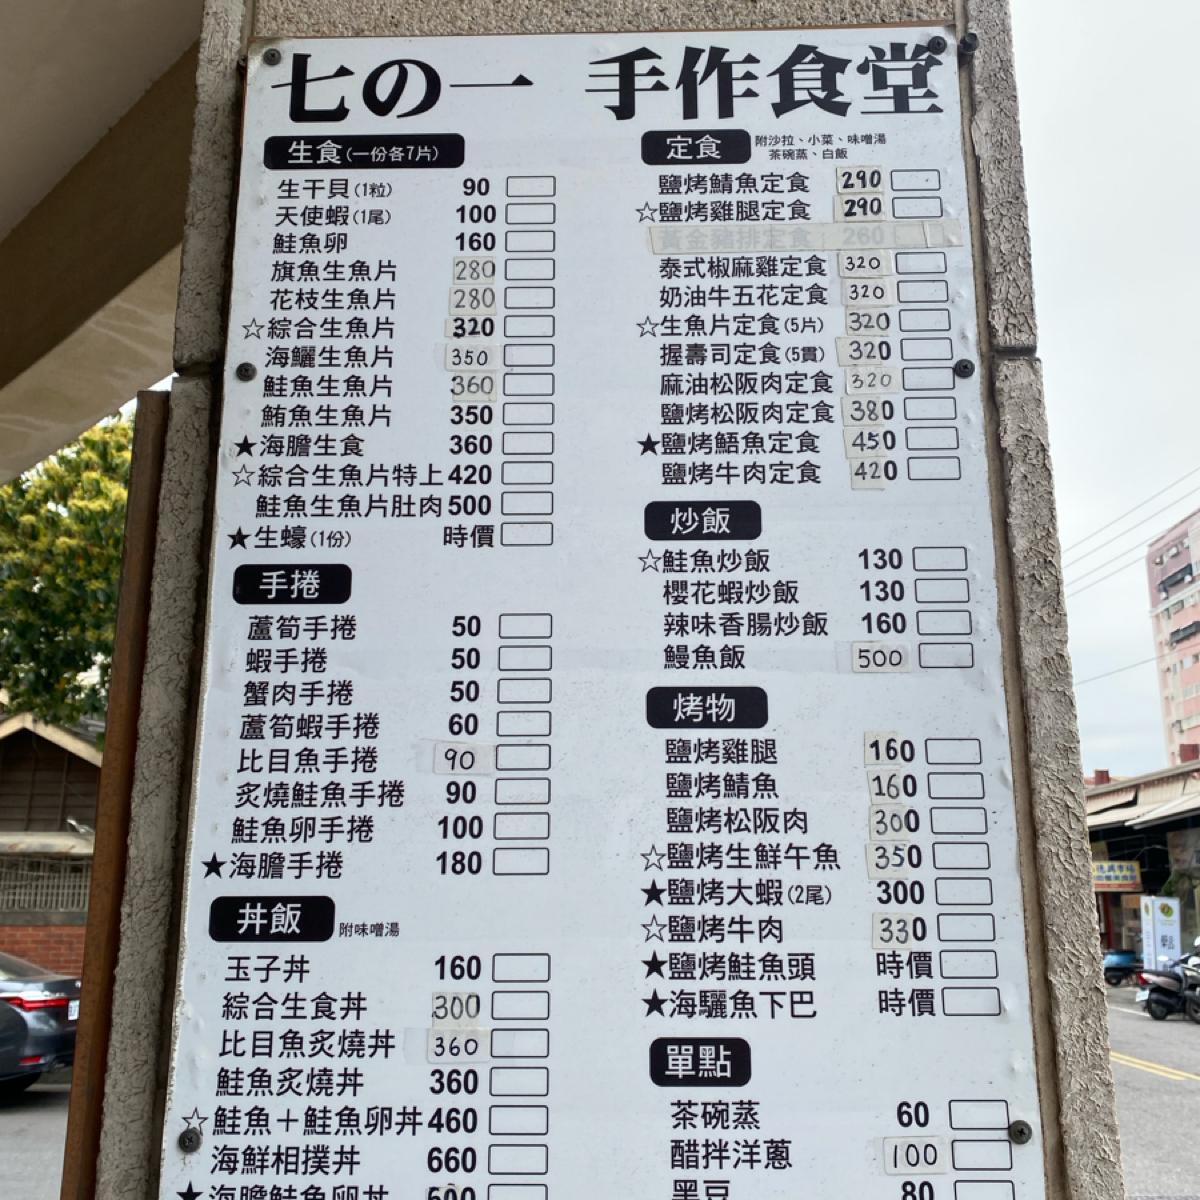 七の一 手作食堂
生食(一份各7片)
生干貝(1粒) 90
天使蝦(1尾) 100
鮭魚卵 160
旗魚生魚片 280
花枝生魚片 280
☆綜合生魚片 320
海鱺生魚片 350
鮭魚生魚片 360
鮪魚生魚片 350
★海膽生食 360
☆綜合生魚片特上 420
鮭魚生魚片肚肉 500
★生蠔(1份) 時價
手捲
蘆筍手捲 50
蝦手捲 50
蟹肉手捲 50
蘆筍蝦手捲 60
比目魚手捲 90
炙燒鮭魚手捲 90
鮭魚卵手捲 100
★海膽手捲 180
丼飯 附味噌湯
玉子丼 160
綜合生食丼 300
比目魚炙燒丼 360
鮭魚炙燒丼 360
☆鮭魚+鮭魚卵丼 460
海鮮相撲丼 660
★海膽鮭魚卵丼
定食 附沙拉、小菜、味噌湯
茶碗蒸、白飯
鹽烤鯖魚定食 290
☆鹽烤雞腿定食 290
黃金豬排定食 260
泰式椒麻雞定食 320
奶油牛五花定食 320
☆生魚片定食(5片) 320
握壽司定食(5貫) 320
麻油松阪肉定食 320
鹽烤松阪肉定食 380
★鹽烤鯃魚定食 450
鹽烤牛肉定食 420
炒飯
☆鮭魚炒飯 130
櫻花蝦炒飯 130
辣味香腸炒飯 160
鰻魚飯 500
烤物
鹽烤雞腿 160
鹽烤鯖魚 160
鹽烤松阪肉 300
☆鹽烤生鮮午魚 350
★鹽烤大蝦(2尾) 300
☆鹽烤牛肉 330
★鹽烤鮭魚頭 時價
★海驪魚下巴 時價
單點
茶碗蒸 60
醋拌洋蔥 100
黑豆 80